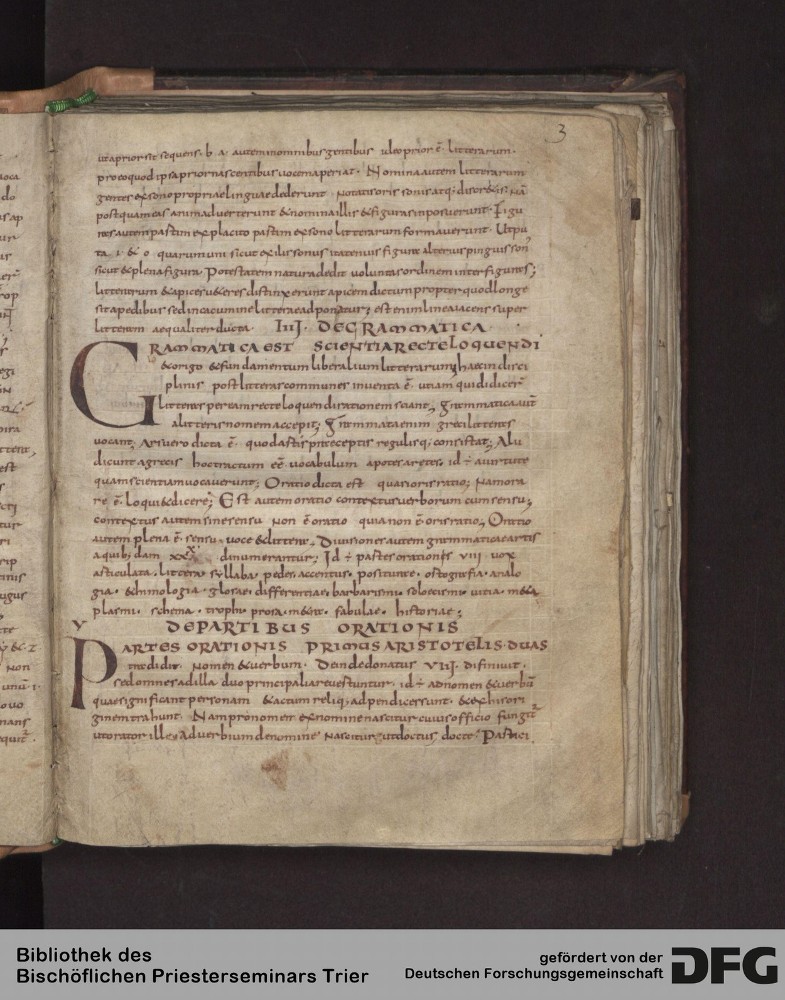 3
uta prior sit sequens. b. a. autem in omnibus gentibus ideo prior ē. litterarum.
pro eo quod ipsa prior nascentibus vocem aperiat. Nomina autem litterarum
gentes ex sono propriae linguae dederunt. Notatis oris sonis atq; discretis. Nā
postquam eas animadverterunt & nomina illis & figuras inposuerunt. Figu
ras autem partim ex placito partim ex sono litterarum formaverunt. Ut pu
ta. i. & o. quarum uni sicut exilis sonus ita tenuis figura alterius pinguis son
sicut & plena figura. Potestatem natura dedit voluntas ordinem inter figuras;
litterarum & apices veteres distinxerunt apicem dictum propter quod longe
sit a pedibus sed in cacumine litterae adponatur; est enim linea iacens super
litteram aequaliter ducta. IIIJ. DE GRAMMATICA.
GRAMMATICA EST SCIENTIA RECTE LOQUENDI
& origo & fundamentum liberalium litterarum; haec in disci
plinis post litteras communes inventa ē. ut iam qui didicer
litteras per eam recte loquendi rationem sciant; Grammatica aut
a litteris nomen accepit; Grammata enim greci litteras
vocant; Ars vero dicta ē. quod artis praeceptis regulisq; consistat; Alii
dicunt a grecis hoc tractum eē vocabulum apo tes aretes. id ÷ a virtute
quam scientiam vocaverunt; Oratio dicta est quasi oris ratio; Nam ora
re ē. loqui & dicere; Est autem oratio contextus verborum cum sensu;
contextus autem sine sensu non ē oratio quia non ē oris ratio; Oratio
autem plena ē. sensu. voce & littera. Divisiones autem grammaticae artis
a quib; dam xxx dinumerantur; Id ÷ partes orationis viii. vox
articulata. littera. syllaba. pedes. accentus. positurae. ortografia. analo
gia. & himologia. glosae. differentiae. barbarismi. soloecismi. vitia. m&a
plasmi. schema. trophi. prosa. m&ra. fabulae. historiae;
V DE PARTIBUS ORATIONIS
PARTES ORATIONIS PRIMUS ARISTOTELIS. DUAS
tradidit. Nomen & verbum. Deinde donatus VIIJ. difinivit.
sed omnes ad illa duo principalia revertuntur. id ÷ ad nomen & verbū
quae significant personam & actum reliq; adpendices sunt. & ex his ori
ginem trahunt. Nam pronomen ex nomine nascitur cuius officio fungit
ut orator ille; Adverbium de nomine nascitur; ut doctus docte. Partici
Bibliothek des
Bischöflichen Priesterseminars Trier
gefördert von der
Deutschen Forschungsgemeinschaft
DFG